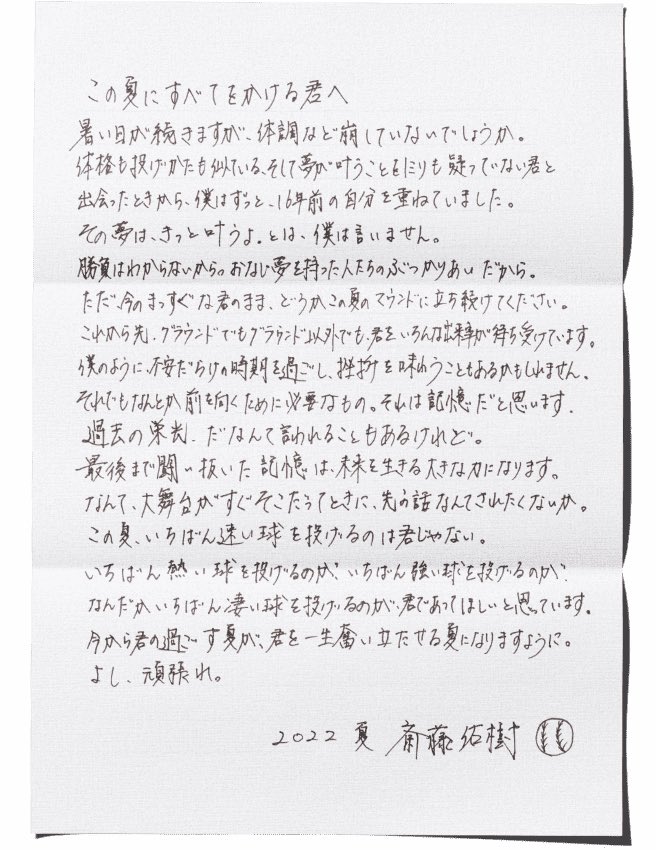 この夏にすべてをかける君へ
暑い日が続きますが、体調など崩していないでしょうか。
体格も投げかたも似ている、そして夢が叶うことを1ミリも疑っていない君と
出会ったときから、僕はずっと、16年前の自分を重ねていました。
その夢は、きっと叶うよ。とは、僕は言いません。
勝負はわからないから。おなじ夢を持った人たちのぶつかりあいだから。
ただ、今のまっすぐな君のまま、どうかこの夏のマウンドに立ち続けてください。
これから先、グラウンドでもグラウンド以外でも、君をいろんな出来事が待ち受けています。
僕のように、不安だらけの時期を過ごし、挫折を味わうこともあるかもしれません。
それでもなんとか前を向くために必要なもの。それは記憶だと思います。
過去の栄光、だなんて言われることもあるけれど。
最後まで闘い抜いた記憶は、未来を生きる大きな力になります。
なんて、大舞台がすぐそこだってときに、先の話なんてされたくないか。
この夏、いちばん速い球を投げるのは君じゃない。
いちばん熱い球を投げるのか？いちばん強い球を投げるのか？
なんだかいちばん凄い球を投げるのが、君であってほしいと思っています。
今から君の過ごす夏が、君を一生奮い立たせる夏になりますように。
よし、頑張れ。
2022 夏 斎藤佑樹